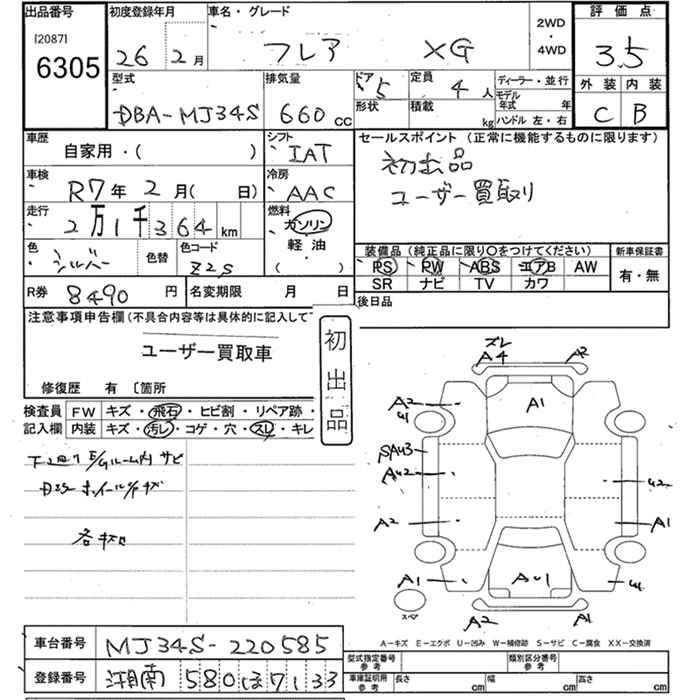 出品番号
[2087]
6305
初度登録年月
26 2月
車名・グレード
フレア XG
2WD
・
4WD
評価点
3.5
型式
DBA-MJ34S
排気量
660 cc
ドア
5
形状
定員
4 人
積載
kg
ディーラー・並行
モデル年式 年
ハンドル 左・右
外装 内装
C B
車歴
自家用・( )
シフト
IAT
セールスポイント (正常に機能するものに限ります)
初出品
ユーザー買取り
車検
R7年 2月( 日)
冷房
AAC
走行
2万1千364 km
燃料
ガソリン
軽油
( )
色
シルバー
色替
色コード
Z2S
装備品(純正品に限り〇をつけてください)
PS PW ABS エアB AW
SR ナビ TV カワ
新車保証書
有・無
R券 8490 円
名変期限 月 日
後日品
注意事項申告欄(不具合内容等は具体的に記入して
ユーザー買取車
初出品
修復歴 有 〔箇所
検査員記入欄
FW キズ・飛石・ヒビ割・リペア跡・
内装 キズ・汚レ・コゲ・穴・スレ・キレ
下廻り E/gルーム内 サビ
ホイールキズ
ズレ
A4 A2
A2 A1
U1
SAU3
AU2 U2
A2 A1
A1 AU1
スペア
A2 A1
A-キズ E-エクボ U-凹み W-補修跡 S-サビ C-腐食 XX-交換済
車台番号 MJ34S-220585
登録番号 湘南 580 ほ 7133
型式指定番号
参考
類別区分番号
参考
車庫証明用
参考
長さ cm 幅 cm 高さ cm